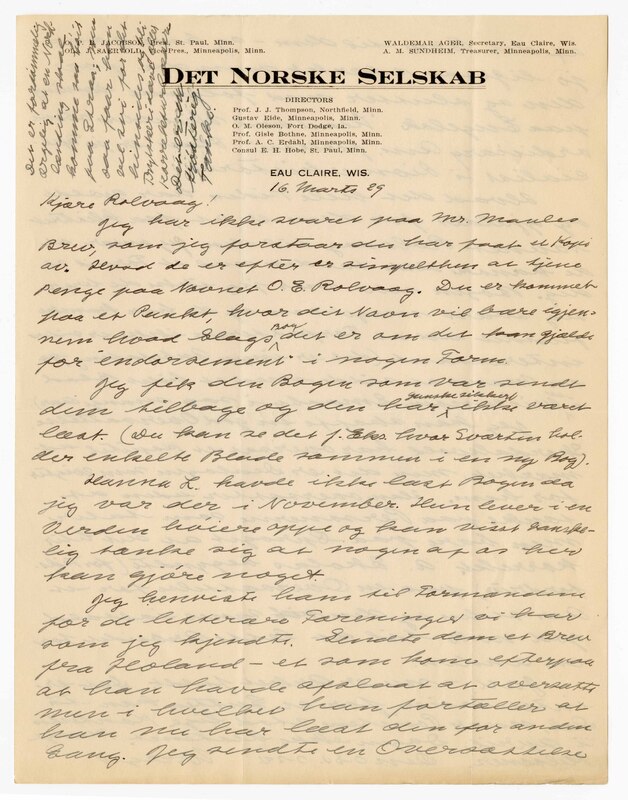 O. P. B. JACOBSON, Pres., St. Paul, Minn.
OLE J. SAERVOLD, Vice-Pres., Minneapolis, Minn.
WALDEMAR AGER, Secretary, Eau Claire, Wis.
A. M. SUNDHEIM, Treasurer, Minneapolis, Minn.
DET NORSKE SELSKAB
DIRECTORS
Prof. J. J. Thompson, Northfield, Minn.
Gustav Eide, Minneapolis, Minn.
O. M. Oleson, Fort Dodge, Ia.
Prof. Gisle Bothne, Minneapolis, Minn.
Prof. A. C. Erdahl, Minneapolis, Minn.
Consul E. H. Hobe, St. Paul, Minn.
EAU CLAIRE, WIS.
16. Marts 29
Kjære Rolvaag!
Jeg har ikke svaret paa Mr. Manles
Brev, som jeg forstaar du har faat en Kopi
av. Hvad de er efter er simpelthen at tjene
Penge paa Navnet O. E. Rolvaag. Du er kommet
paa et Punkt hvor dit Navn vil bære igjen-
nem hvad Slags Bog det er om det kan gjælde
for "endorsement" i nogen Form.
Jeg fik den Bogen som var sendt
dem tilbage og den har ganske sikkert ikke været
læst. (Du kan se det f. Eks. hvor Sværten hol-
der enkelte Blade sammen i en ny Bog).
Hanna L. havde ikke læst Bogen da
jeg var der i November. Hun lever i en
Verden høiere oppe og kan visst vanske-
lig tænke sig at nogen af os her
kan gjøre noget.
Jeg henviste ham til Formændene
for de litterære Foreninger vi har
som jeg kjendte. Sendte dem et Brev
fra Holand – et som kom efterpaa
at han havde afslaat at oversætte
men i hvilket han fortæller at
han nu har læst den for anden
Gang. Jeg sendte en Oversættelse